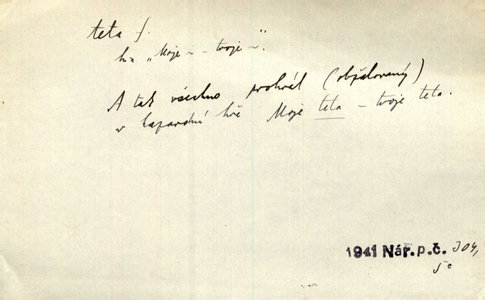 teta f.
hra „Moje ~ - tvoje ~".
A tak všechno prohrál (obžalovaný)
v hazardní hře Moje teta - tvoje teta.
1941 Nár. p. č. 304,
5 c